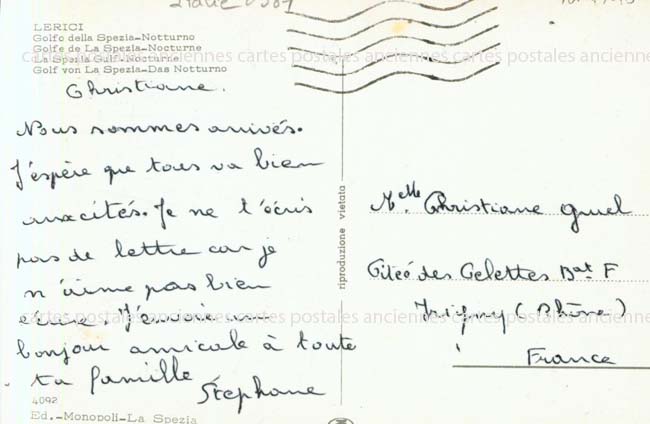 LERICI
Golfo della Spezia-Notturno
Golfe de La Spezia-Nocturne
La Spezia Gulf-Nocturne
Golf von La Spezia-Das Notturno
cartes postales anciennes cartes postales anciennes cartes postales anciennes
Christiane.
Nous sommes arrivés.
J'espère que tous va bien
aux cités. Je ne t'écris
pas de lettre car je
n'aime pas bien
écrire. J'envoie un
bonjour amicale à toute
ta famille
Stéphane
4092
Ed.-Monopoli-La Spezia
riproduzione vietata
Melle Christiane
Citeé des Celettes Bat F
Irigny (Rhône)
France
cartes postales anciennes cartes postales anciennes cartes postales anciennes